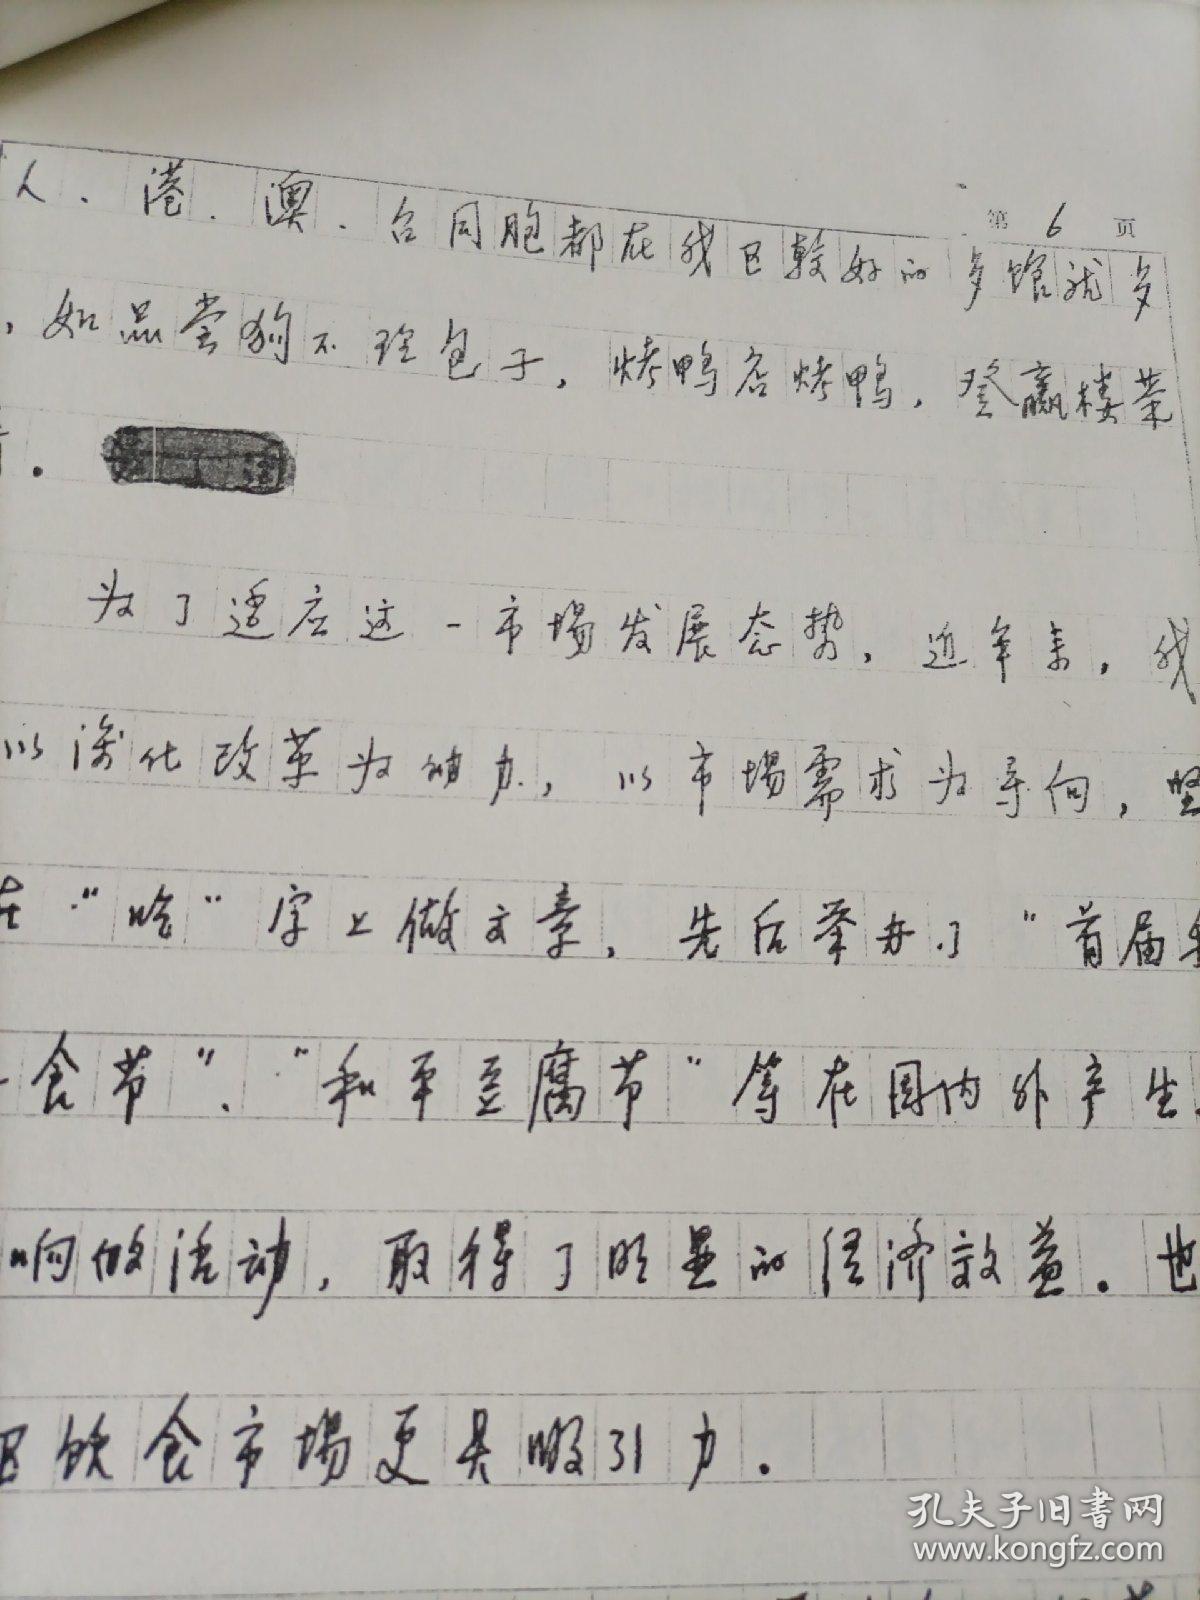 第 6 页
人、港、澳、台同胞都在我区较好的 馆就
，如品尝狗不理包子，烤鸭店烤鸭，登瀛楼菜
。
为了适应这一市場发展态势，近年来，我
以深化改革为动力，以市場需求为导向，坚
在"吃"字上做文章，先后举办了"首届
食节"、"和平豆腐节"等在国内外产生
响的活动，取得了明显的经济效益。也
区饮食市場更具吸引力。
孔夫子旧書网
www.kongfz.com